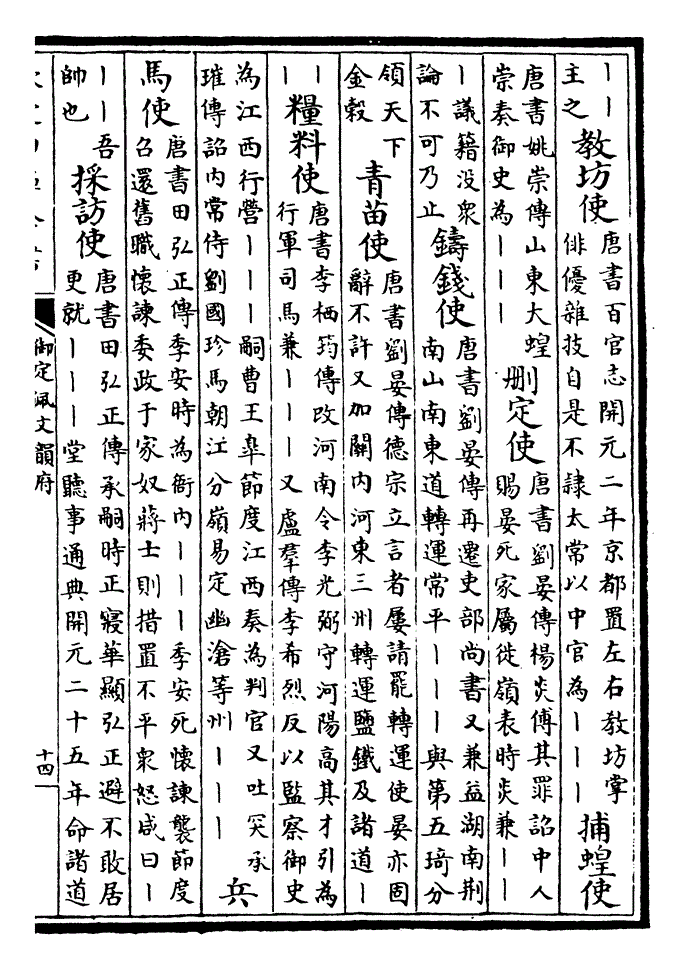 丨丨
主之
教坊使
唐書百官志開元二年京都置左右教坊掌
俳優雜技自是不隸太常以中官為丨丨丨
捕蝗使
唐書姚崇傳山東大蝗
崇奏御史為丨丨丨
刪定使
唐書劉晏傳楊炎傅其罪詔中人
賜晏死家屬徙嶺表時炎兼丨丨
丨議籍没衆
論不可乃止
鑄錢使
唐書劉晏傳再遷吏部尚書又兼益湖南荆
南山南東道轉運常平丨丨丨與第五琦分
領天下
金榖
青苗使
唐書劉晏傳德宗立言者屢請罷轉運使晏亦固
辭不許又加關内河東三州轉運鹽鐵及諸道丨
丨
丨
糧料使
唐書李栖筠傳改河南令李光弼守河陽高其才引為
行軍司馬兼丨丨丨又盧羣傳李希烈反以監察御史
為江西行營丨丨丨嗣曹王臯節度江西奏為判官又吐突承
璀傳詔内常侍劉國珍馬朝江分嶺易定幽滄等州丨丨丨
兵
馬使
唐書田弘正傳季安時為衙内丨丨丨季安死懷諫襲節度
召還舊職懷諫委政于家奴蔣士則措置不平衆怒咸曰丨
丨丨吾
帥也
採訪使
唐書田弘正傳承嗣時正寢華顯弘正避不敢居
更就丨丨丨堂聽事通典開元二十五年命諸道
御定佩文韻府
十四